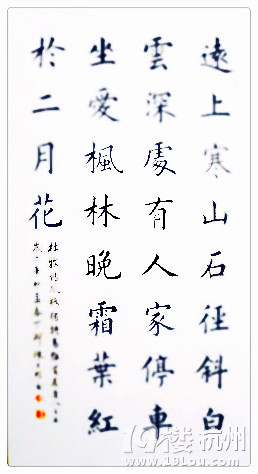 遠上寒山石徑斜白
雲深處有人家停車
坐愛楓林晚霜葉紅
於二月花
杜牧詩
19楼 杭州
www.19lou.com